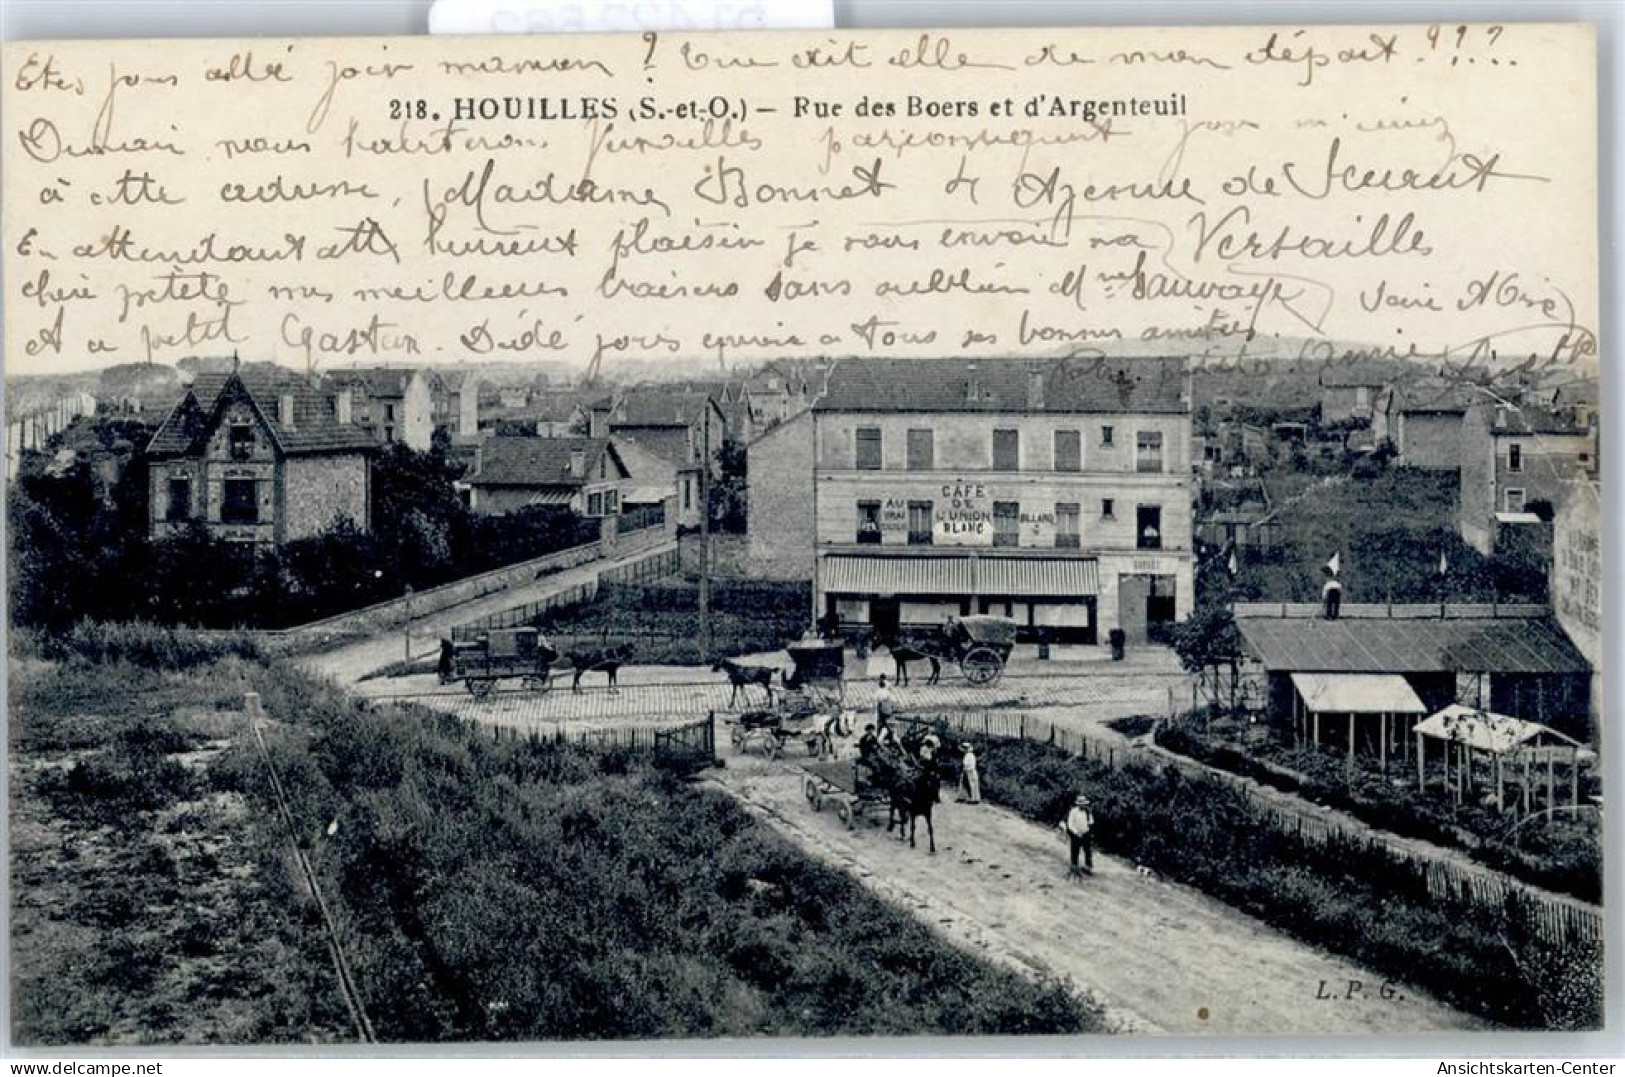 Etes vous allé voir maman ? Que dit elle de mon départ . ! ? ! ? ..
218. HOUILLES (S.-et-O.) — Rue des Boers et d'Argenteuil
Demain nous habiterons Versailles par conséquent
à cette adresse, (Madame Bonnet 4 Avenue de
En attendant cette heureux plaisir je vous envoie ma Versailles
chère petite mes meilleurs baisers sans oublier Mme Sauvage
Et a petit Gaston. Dédé vous envoie a tous ses bonnes amitiés.
CAFÉ
DE
L'UNION
BLANC
AU
VRAI
BILLARD
L. P. G.
my-hc.com
Ansichtskarten-Center